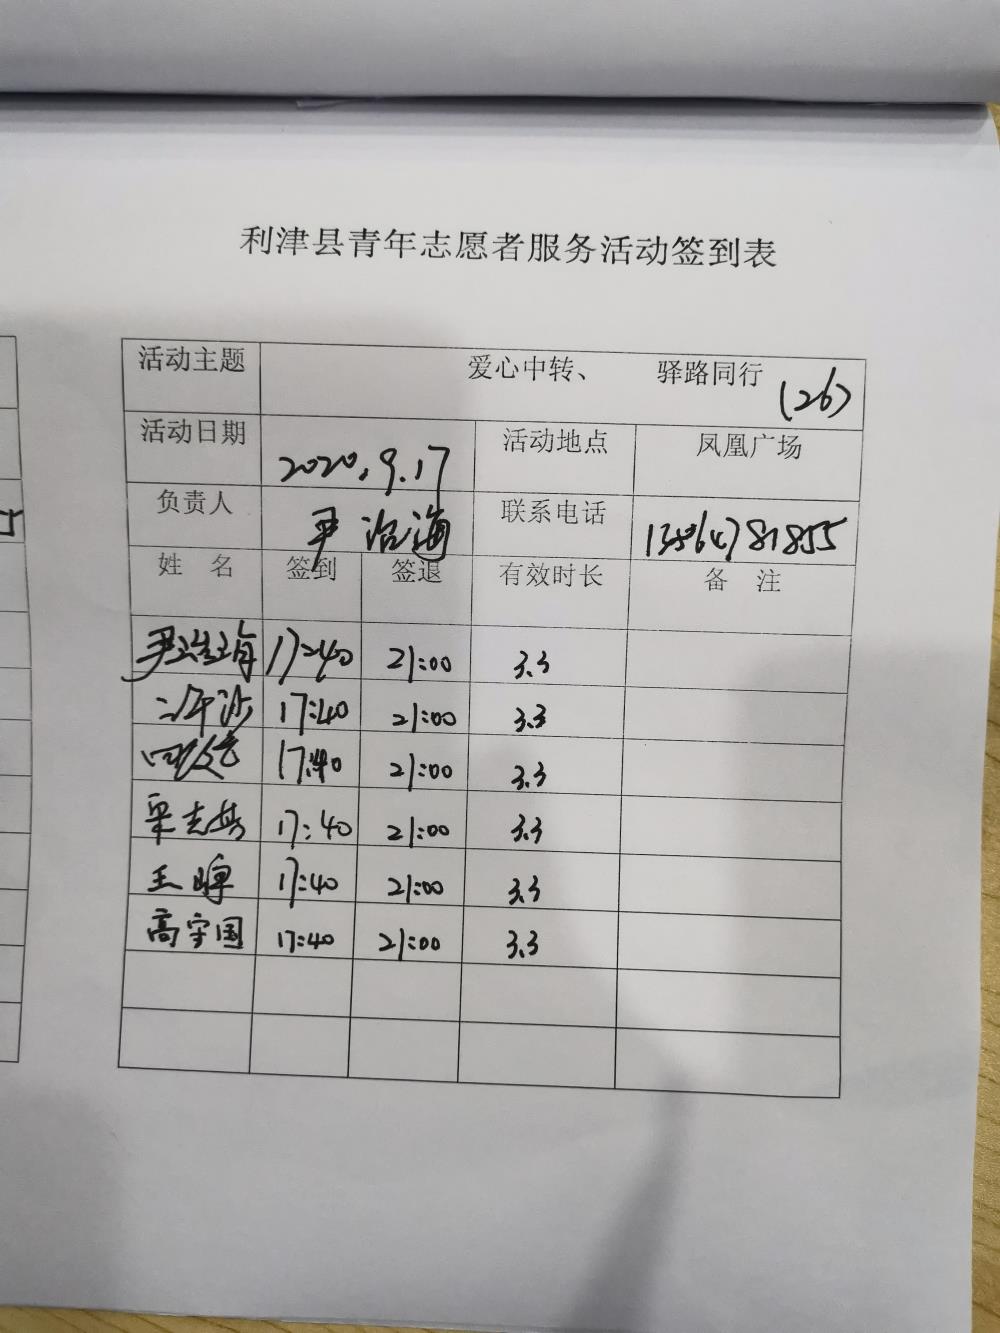 利津县青年志愿者服务活动签到表
活动主题 爱心中转、 驿路同行 (26)
活动日期 2020.9.17 活动地点 凤凰广场
负责人 尹沿海 联系电话 13864781855
姓名 签到 签退 有效时长 备注
17:40 21:00 3.3
17:40 21:00 3.3
17:40 21:00 3.3
17:40 21:00 3.3
王晖 17:40 21:00 3.3
高守国 17:40 21:00 3.3